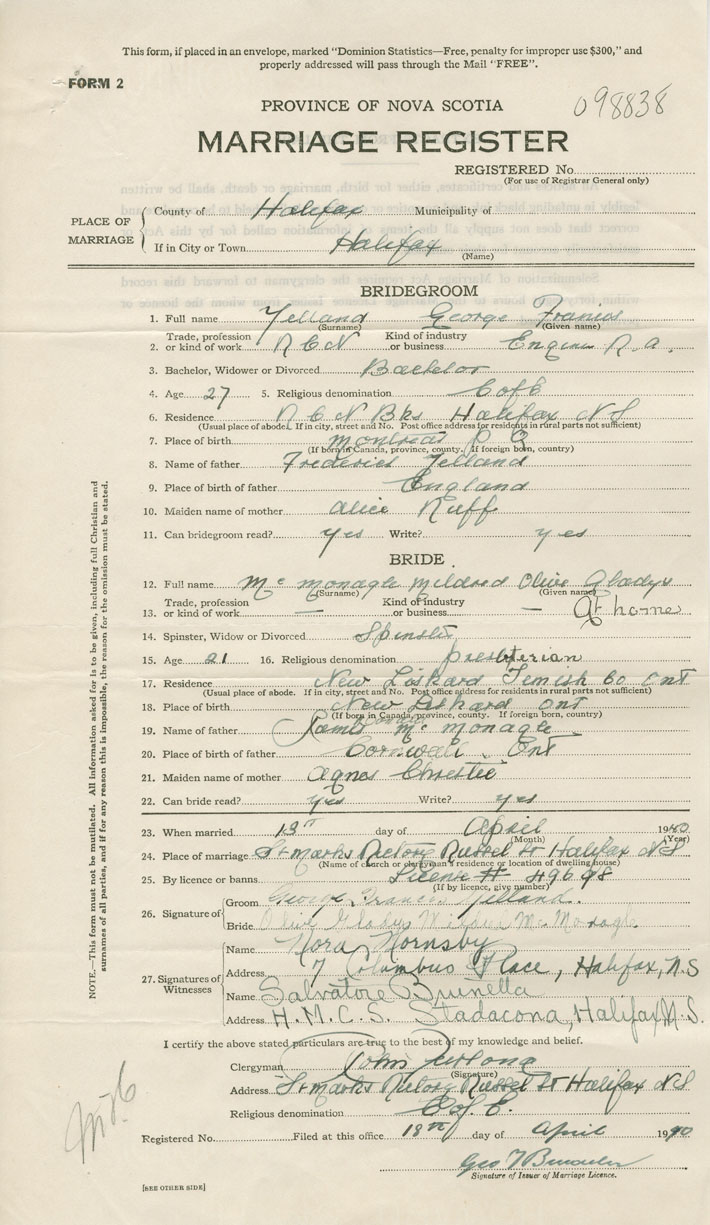 This form, if placed in an envelope, marked "Dominion Statistics—Free, penalty for improper use $300," and
properly addressed will pass through the Mail "FREE".
FORM 2
PROVINCE OF NOVA SCOTIA
098838
MARRIAGE REGISTER
REGISTERED No.
(For use of Registrar General only)
PLACE OF MARRIAGE
County of Halifax Municipality of
If in City or Town Halifax
(Name)
BRIDEGROOM
1. Full name Yelland George Francis
(Surname) (Given name)
2. Trade, profession or kind of work R C N Kind of industry or business Engine R.a.
3. Bachelor, Widower or Divorced Bachelor
4. Age 27 5. Religious denomination C of E
6. Residence R C N Bks Halifax N S
(Usual place of abode. If in city, street and No. Post office address for residents in rural parts not sufficient)
7. Place of birth Montreal P Q
(If born in Canada, province, county. If foreign born, country)
8. Name of father Frederick Yelland
9. Place of birth of father England
10. Maiden name of mother Alice Ruff
11. Can bridegroom read? yes Write? yes
BRIDE
12. Full name Mc Monagle Mildred Olive Gladys
(Surname) (Given name)
13. Trade, profession or kind of work — Kind of industry or business — At home
14. Spinster, Widow or Divorced Spinster
15. Age 21 16. Religious denomination presbterian
17. Residence New Liskard Temish Co Ont
(Usual place of abode. If in city, street and No. Post office address for residents in rural parts not sufficient)
18. Place of birth New Liskard Ont
(If born in Canada, province, county. If foreign born, country)
19. Name of father James Mc Monagle
20. Place of birth of father Cornwall Ont
21. Maiden name of mother Agnes Christie
22. Can bride read? yes Write? yes
23. When married 13th day of April 1940
(Month) (Year)
24. Place of marriage St Marks Rectory Russel St Halifax N S
(Name of church or clergyman's residence or location of dwelling house)
25. By licence or banns License # 49698
(If by licence, give number)
26. Signature of
Groom George Francis Yelland.
Bride Olive Gladys Mildred Mc Monagle
27. Signatures of Witnesses
Name Nora Hornsby
Address 7 Columbus Place, Halifax, N.S
Name Salvatore Brunella
Address H.M.C.S. Stadacona, Halifax N.S.
I certify the above stated particulars are true to the best of my knowledge and belief.
Clergyman John
(Signature)
Address St Marks Rectory Russel St Halifax N S
Religious denomination C of E.
Registered No. Filed at this office 18th day of April 1940
Geo
Signature of Issuer of Marriage Licence.
[SEE OTHER SIDE]
NOTE.—This form must not be mutilated. All information asked for is to be given, including full Christian and
surnames of all parties, and if for any reason this is impossible, the reason for the omission must be stated.